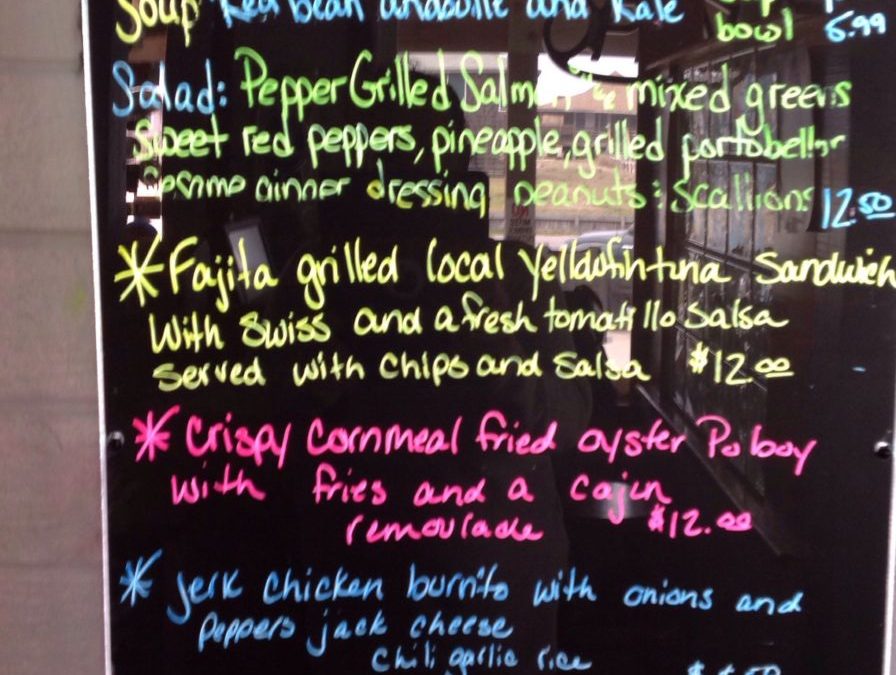 Soup Red bean andouille and Kale
bowl 6.99
Salad: Pepper Grilled Salmon mixed greens
Sweet red peppers, pineapple, grilled portobello
dressing peanuts : scallions 12.50
* Fajita grilled local Yellowfin tuna Sandwich
With Swiss and a fresh tomatillo Salsa
Served with chips and Salsa $12.00
* Crispy Cornmeal fried oyster Po boy
with fries and a cajun
remoulade $12.00
* Jerk chicken burrito with onions and
peppers jack cheese
chili garlic rice